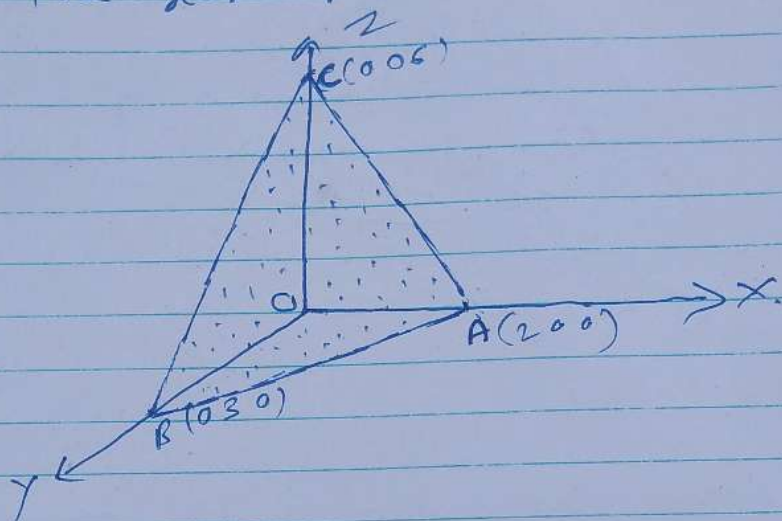 Z
C(0 0 6)
O
X
A(2 0 0)
B(0 3 0)
Y